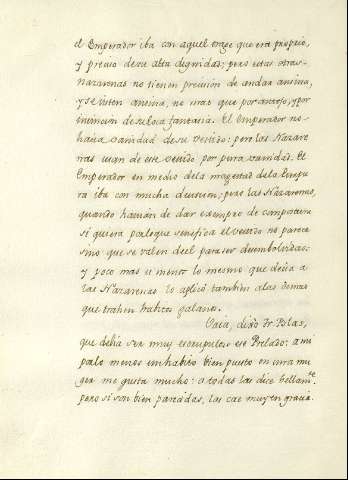 el Emperador iba con aquel trage que era proprio,
y preciso de su alta dignidad; pero estas otras
nazarenas no tienen precision de andar ansina,
y se visten ansina, no mas que por antojo, y por
invencion de su loca fantasia. El Emperador no
hacia vanidad de su vestido: pero las Nazare
nas usan de este vestido por pura vanidad. El
Emperador en medio de la magestad de la Purpu
ra iba con mucha devocion; pero las Nazarenas,
quando havian de dar exemplo de compostura
si quiera por lo que significa el vestido no parece
sino que se valen de el para ser desembueltas:
y poco mas u menos lo mesmo que decia a
las Nazarenas lo aplicó tambien a las demas
que trahen habitos galanos.
Vaia, dixo Dn Blas,
que debia ser muy escrupuloso ese Prelado: a mi
por lo menos un habito bien puesto en una mu
ger me gusta mucho: a todas las dice bellamte.
pero si son bien parecidas, las cae muy en gracia.